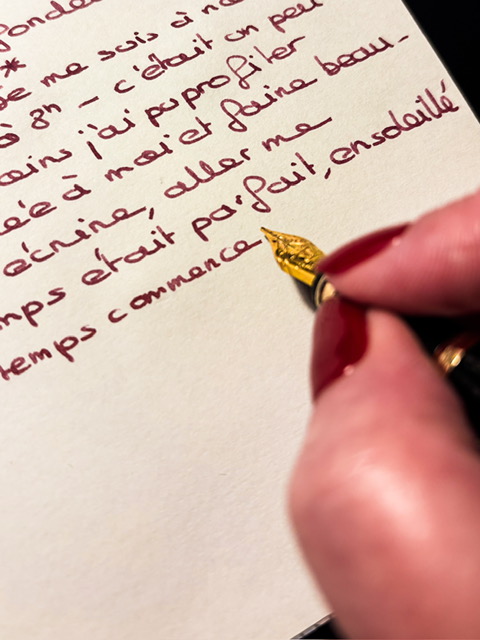 *
me suis à
à 8h – c'était un peu
j'ai pu profiter
à moi et faire beau-
écrire, aller me
était parfait, ensoleillé
temps commence